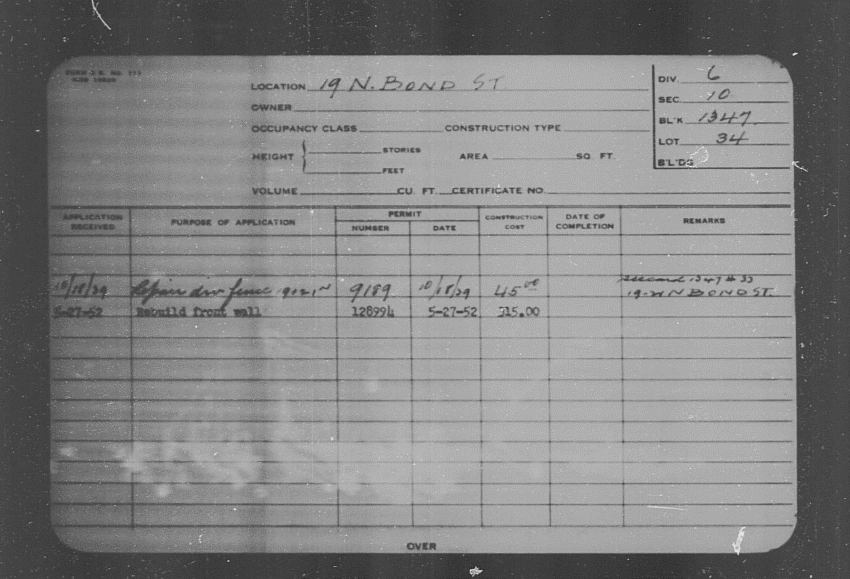 FORM J B. NO. 111
LOCATION 19 N. BOND ST.
OWNER
OCCUPANCY CLASS CONSTRUCTION TYPE
HEIGHT { STORIES AREA SQ. FT.
FEET
VOLUME CU. FT. CERTIFICATE NO.
DIV. 6
SEC. 10
BL'K 1347
LOT 34
B'LDG
APPLICATION RECEIVED PURPOSE OF APPLICATION PERMIT CONSTRUCTION COST DATE OF COMPLETION REMARKS
NUMBER DATE
1347 # 33
10/18/29 Repair div fence 9189 10/18/29 45.00 19-21 N BOND ST.
5-27-52 Rebuild front wall 128994 5-27-52 515.00
OVER